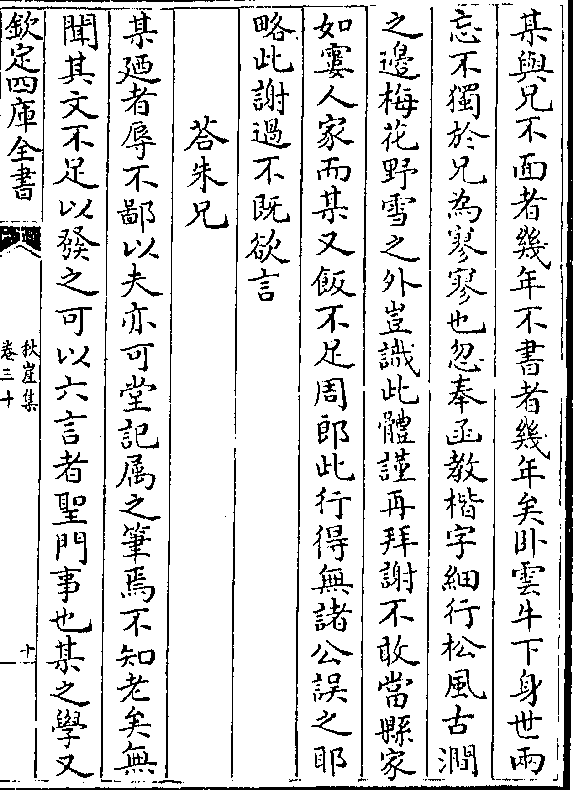 某與兄不面者幾年不書者幾年矣卧雲牛下身世兩
忘不獨於兄為寥寥也忽奉函教楷字細行松風古澗
之邊梅花野雪之外豈識此體謹再拜謝不敢當縣家
如窶人家而某又飯不足周郎此行得無諸公誤之耶
略此謝過不既欲言
荅朱兄
某廼者辱不鄙以夫亦可堂記属之筆焉不知老矣無
聞其文不足以發之可以六言者聖門事也某之學又
欽定四庫全書
秋崖集
卷三十
十